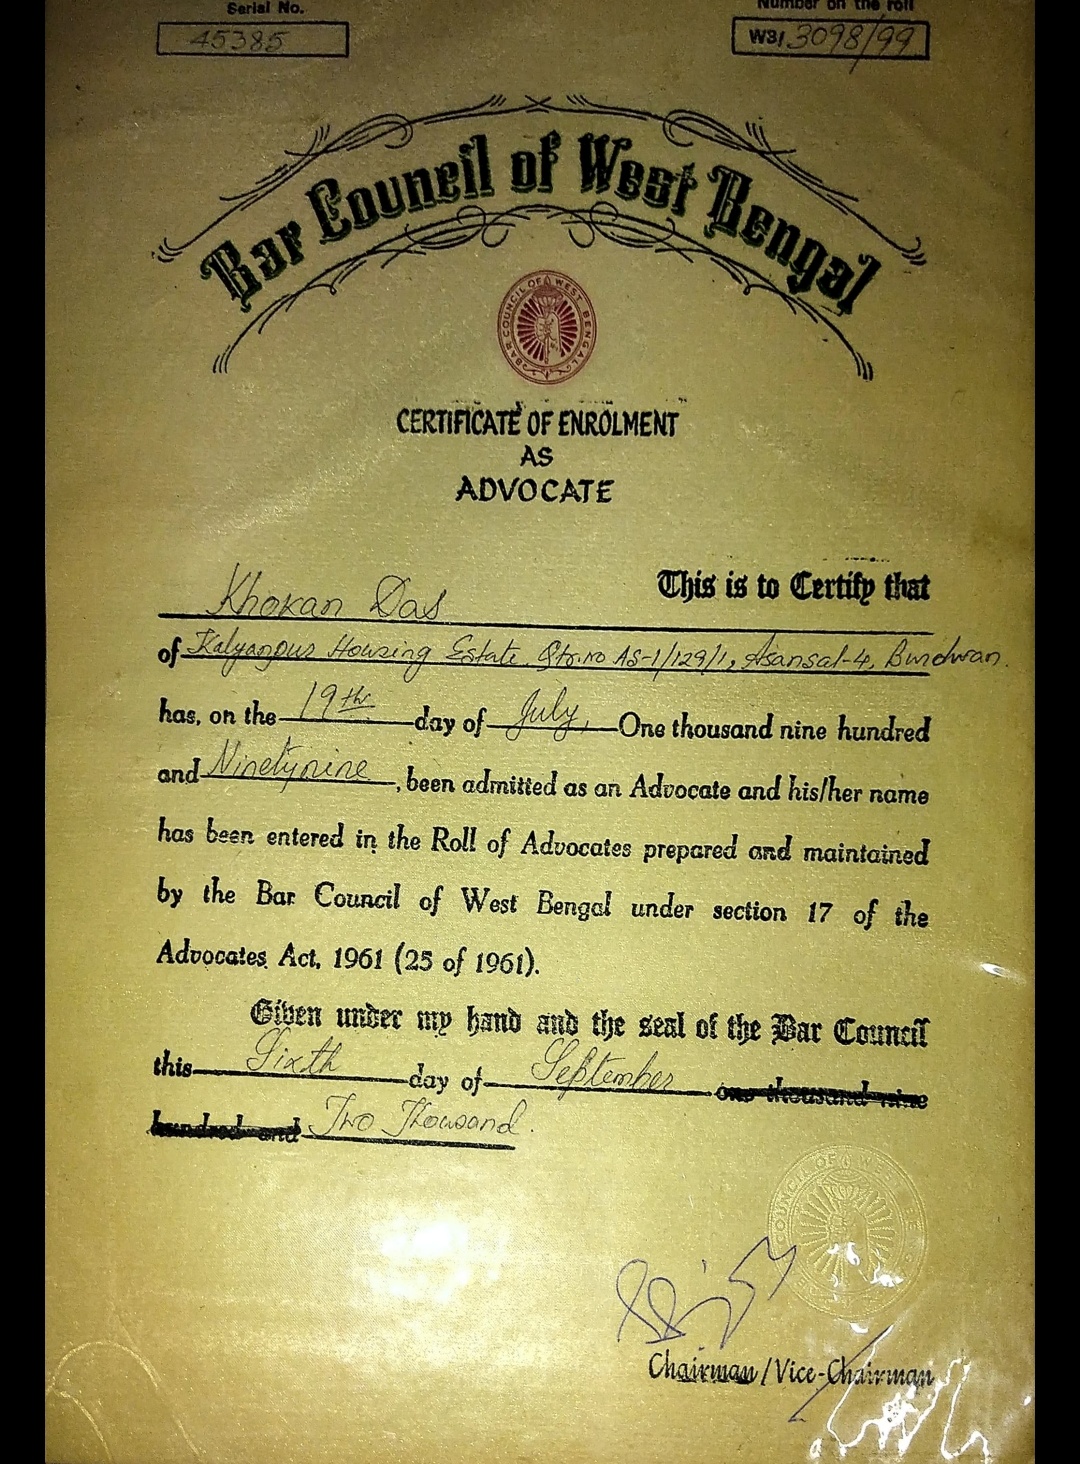 Serial No.
45385
Number on the roll
WB/3098/99
Bar Council of West Bengal
BAR COUNCIL OF WEST BENGAL
CERTIFICATE OF ENROLMENT
AS
ADVOCATE
This is to Certify that
Khokan Das
of Kalyanpur Housing Estate, Qtr. no AS-1/129/1, Asansal-4, Burdwan.
has, on the 19th day of July, One thousand nine hundred
and Ninetynine, been admitted as an Advocate and his/her name
has been entered in the Roll of Advocates prepared and maintained
by the Bar Council of West Bengal under section 17 of the
Advocates Act, 1961 (25 of 1961).
Given under my hand and the seal of the Bar Council
this Sixth day of September one thousand nine
hundred and Two Thousand.
COUNCIL OF WEST BE
Chairman/Vice-Chairman